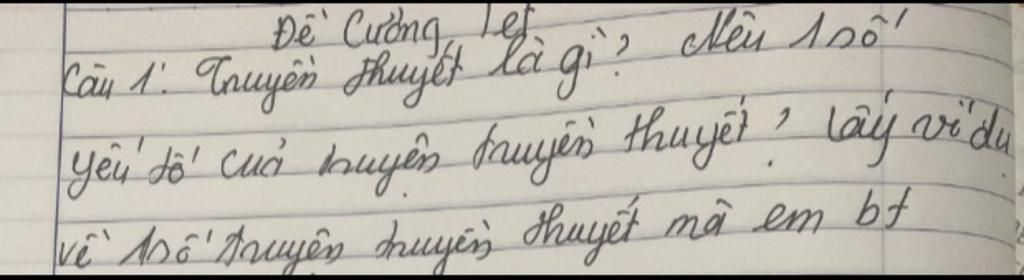 Đề Cường Tết
Câu 1: Truyền thuyết là gì? Nêu 1 số
yếu tố của truyện truyền thuyết? lấy ví dụ
về 1 số truyện truyền thuyết mà em bt